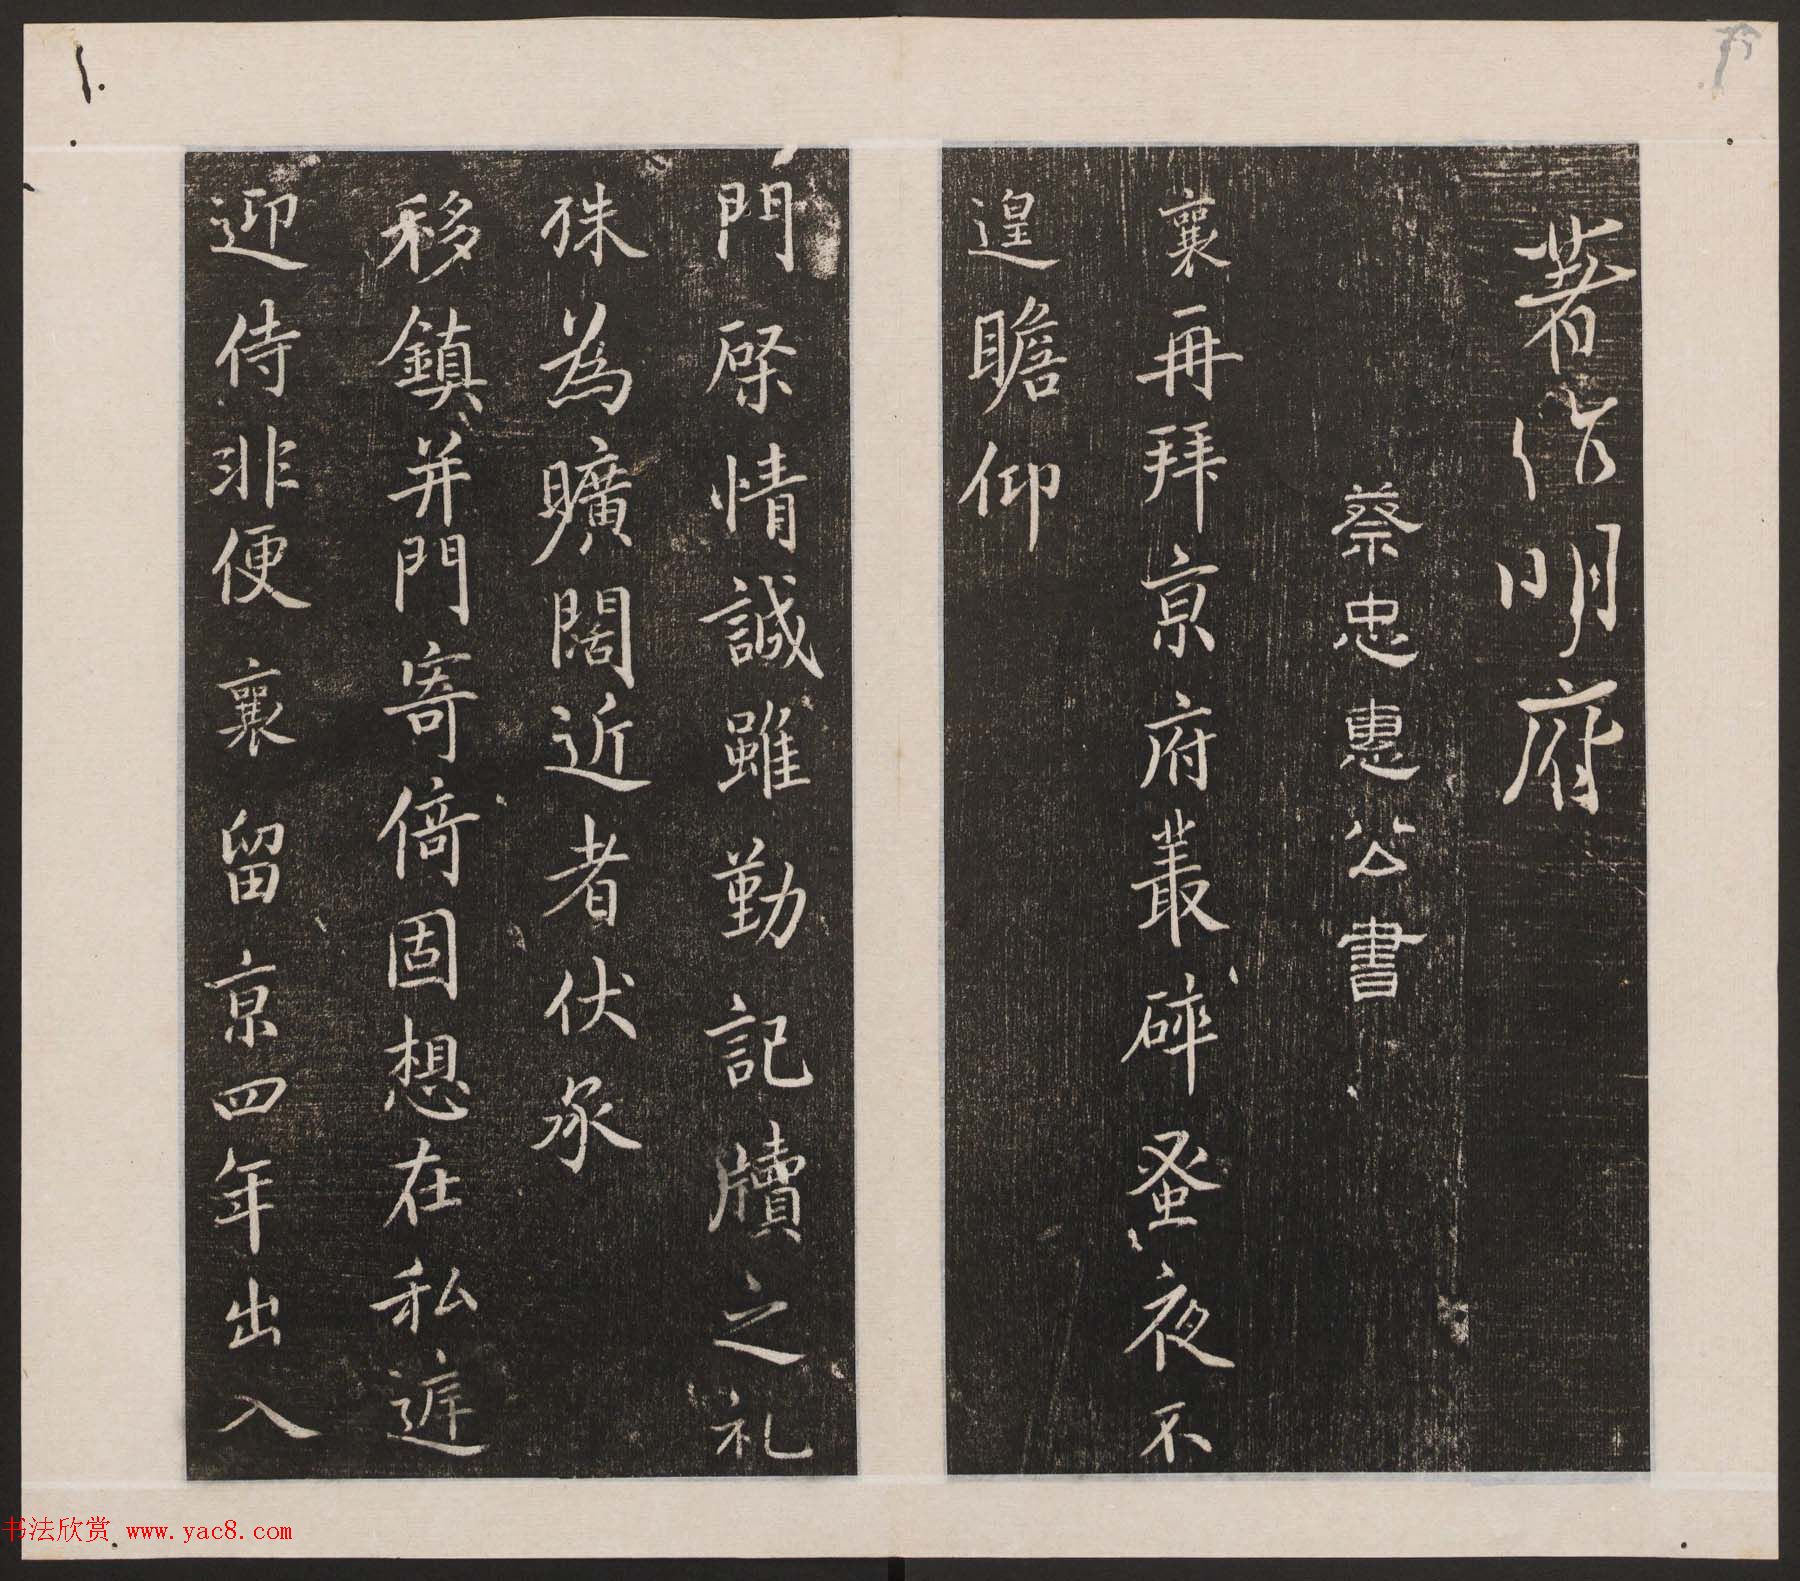 著作明府
蔡忠惠公書
襄再拜亰府叢碎蚤夜不
遑瞻仰
門棨情誠雖勤記牘之礼
殊為曠闊近者伏承
移鎮并門寄倚固想在私
迎侍非便襄留亰四年出入
书法欣赏 www.yac8.com